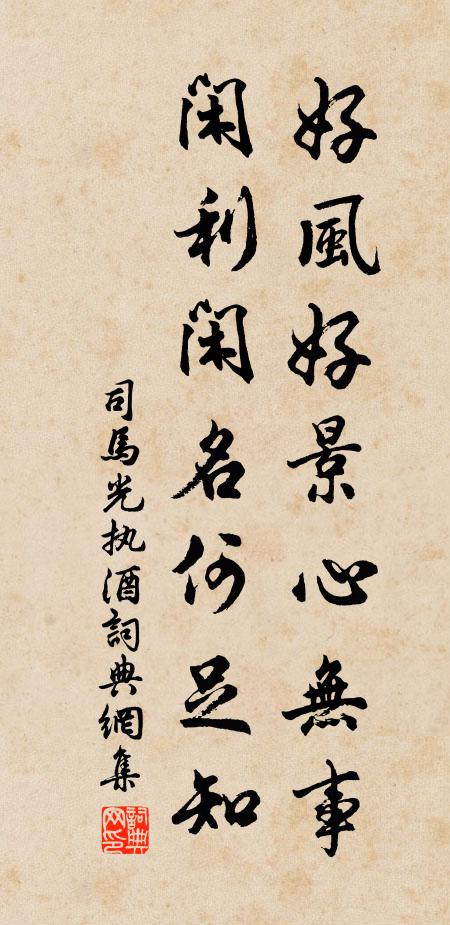 好風好景心無事
閑利閑名何足知
司馬光执酒詞典網集
詞典網印